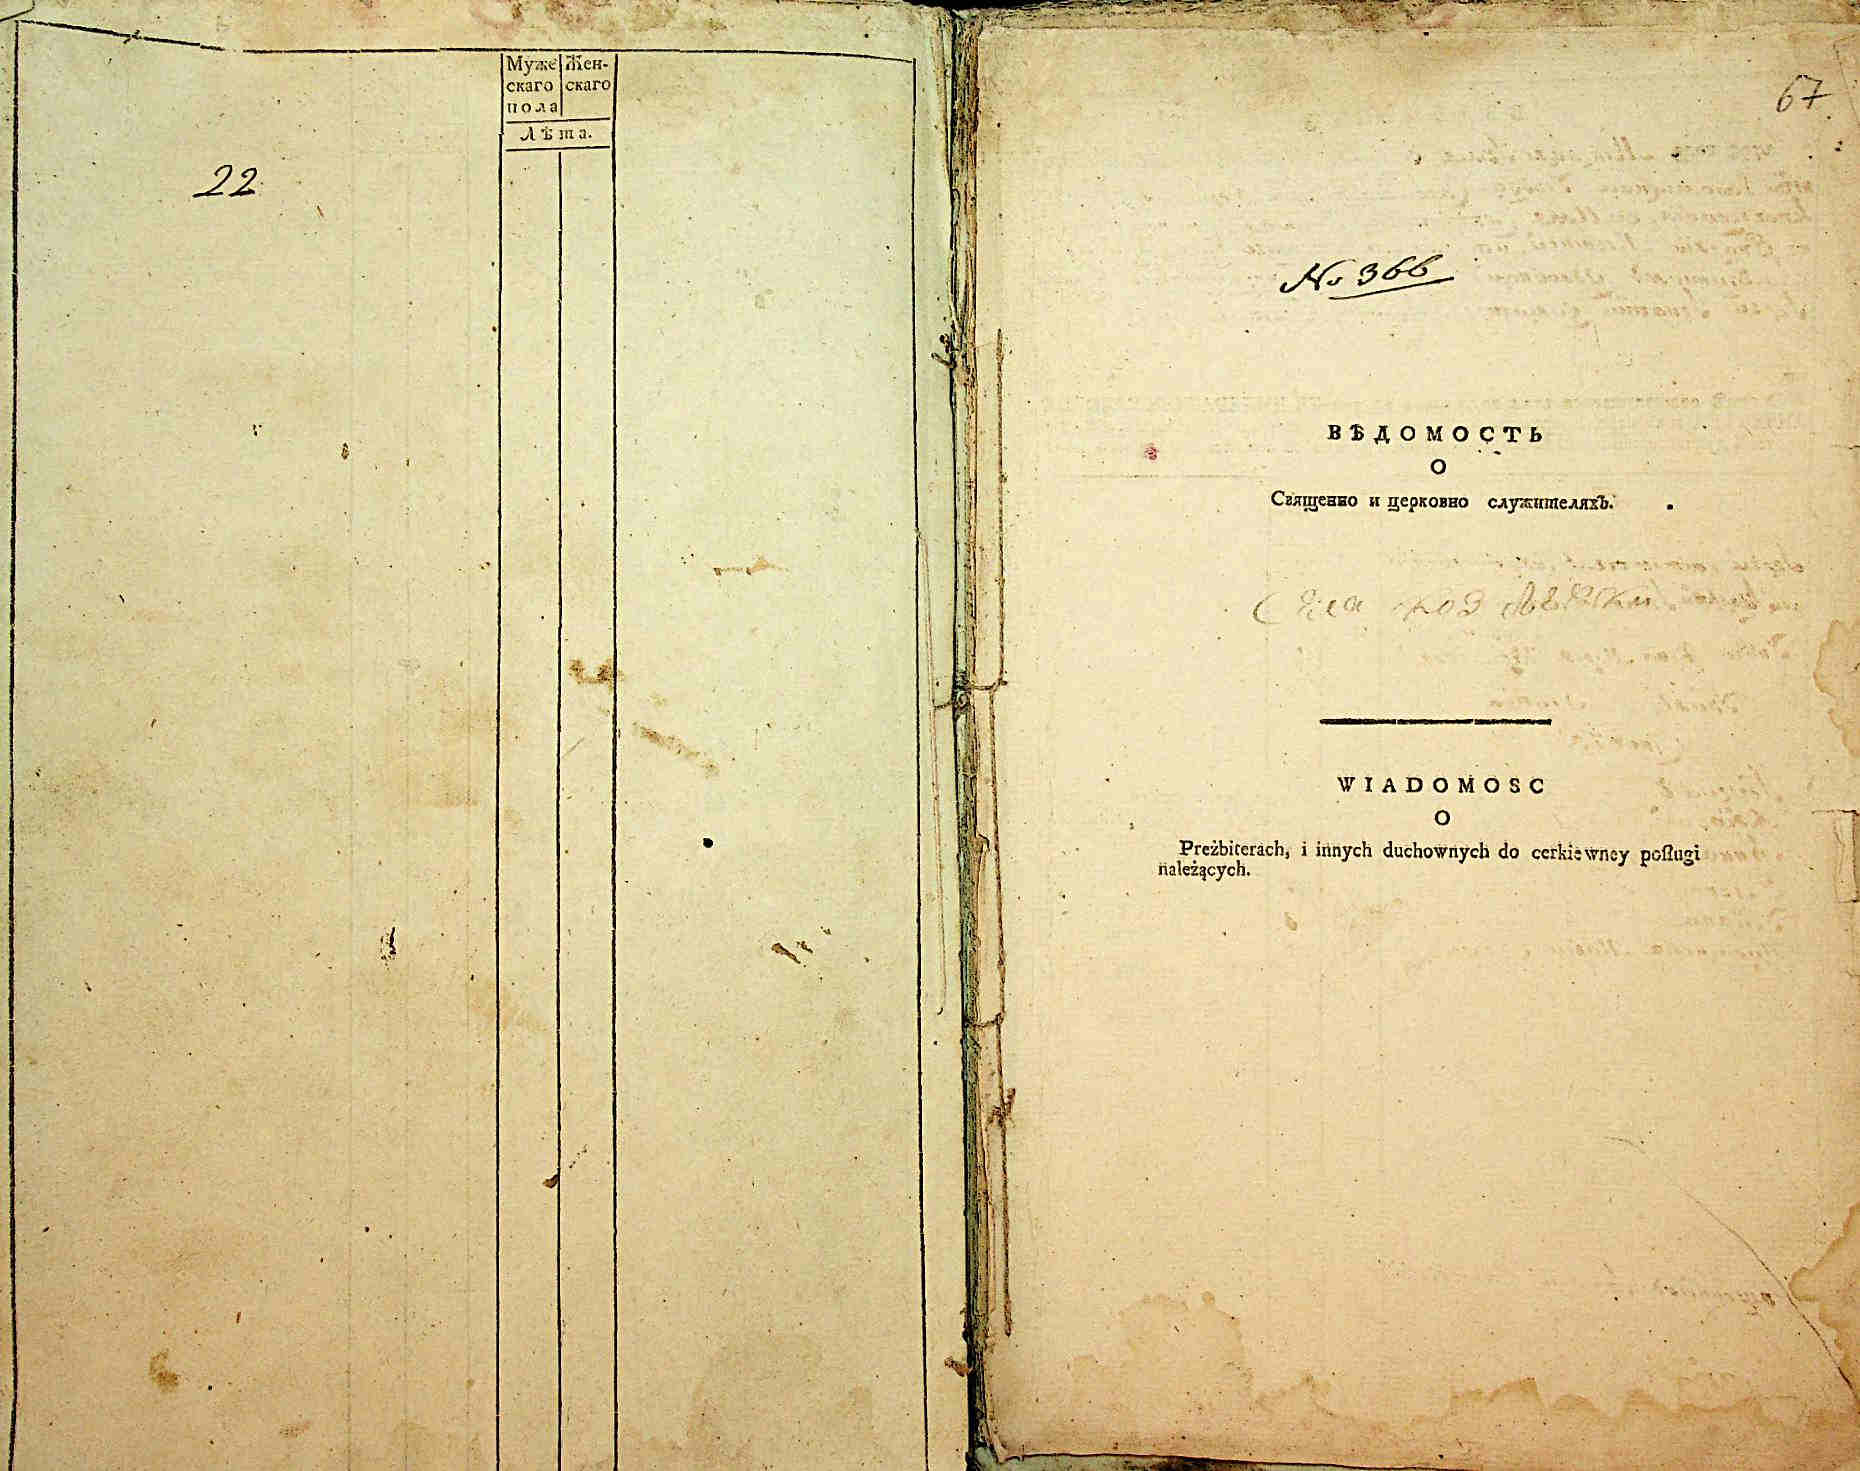 Муже Жен-
скаго скаго
пола
Лѣта.
22
67
No 366
ВѢДОМОСТЬ
О
Священно и церковно служителяхъ.
WIADOMOSC
O
Preżbiterach, i innych duchownych do cerkiewney posługi
należących.